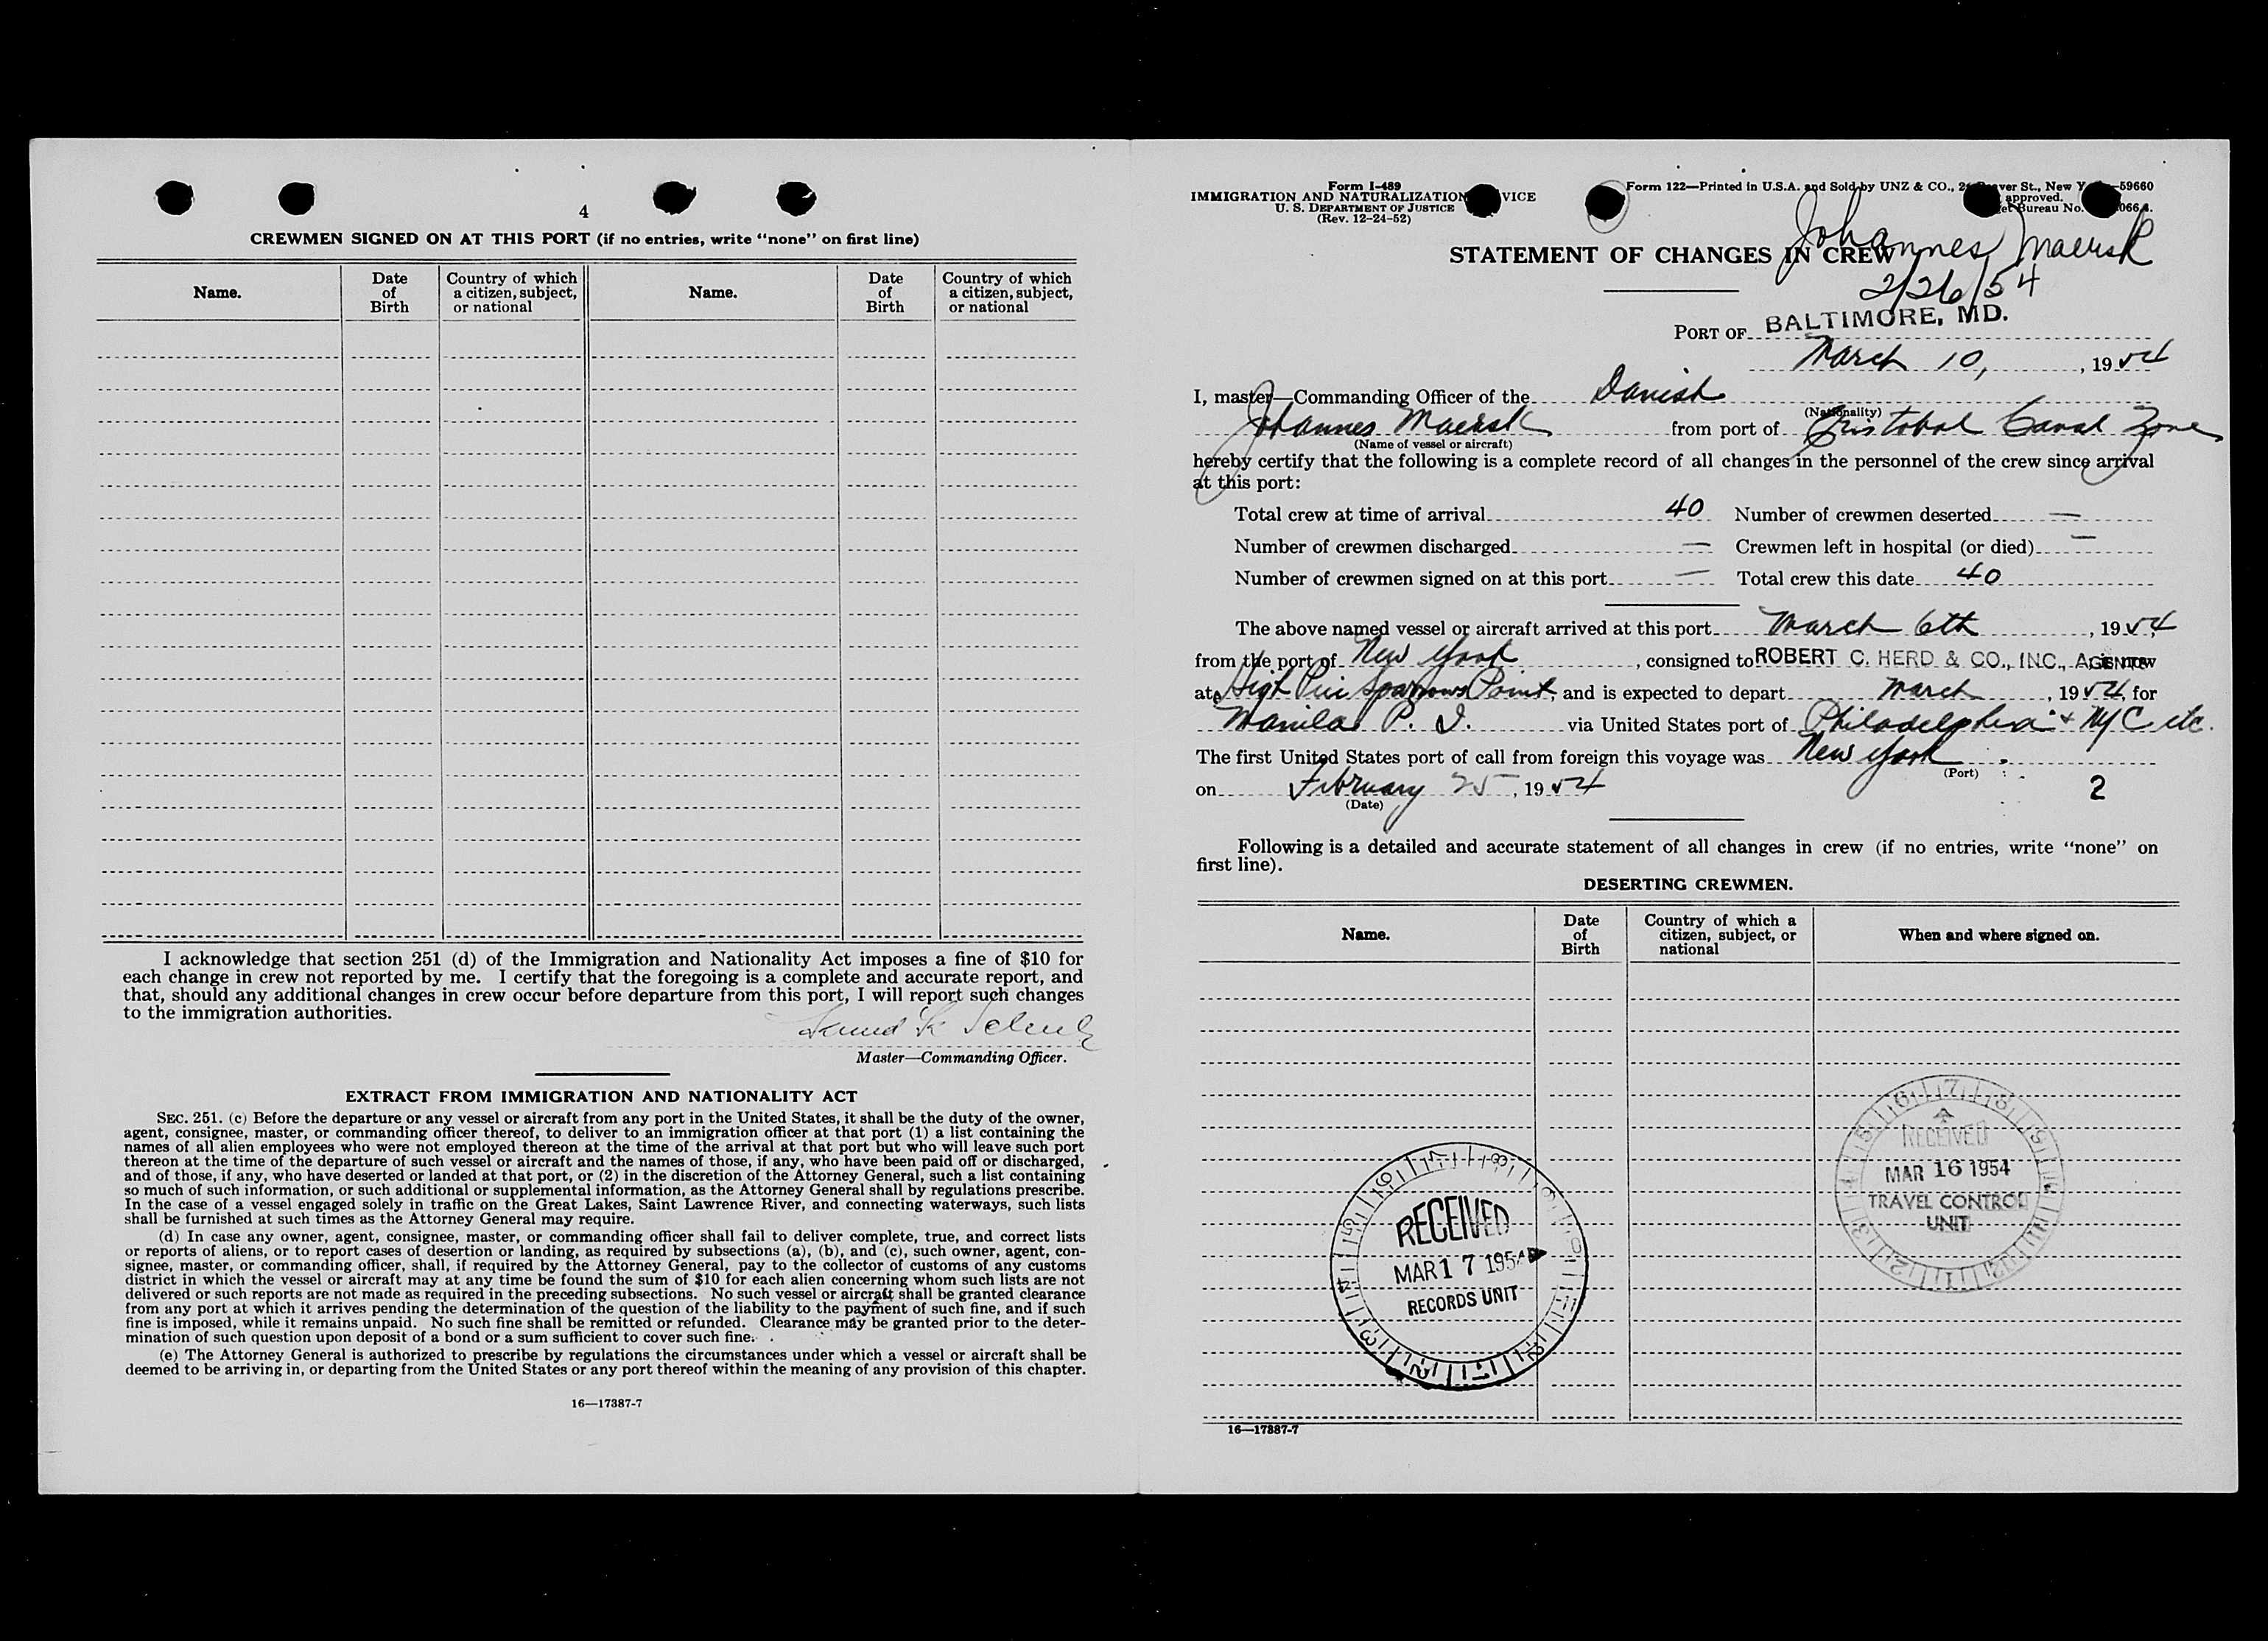 4
CREWMEN SIGNED ON AT THIS PORT (if no entries, write “none” on first line)
Name.
Date of Birth
Country of which a citizen, subject, or national
Name.
Date of Birth
Country of which a citizen, subject, or national
I acknowledge that section 251 (d) of the Immigration and Nationality Act imposes a fine of $10 for
each change in crew not reported by me. I certify that the foregoing is a complete and accurate report, and
that, should any additional changes in crew occur before departure from this port, I will report such changes
to the immigration authorities.
Master—Commanding Officer.
EXTRACT FROM IMMIGRATION AND NATIONALITY ACT
SEC. 251. (c) Before the departure or any vessel or aircraft from any port in the United States, it shall be the duty of the owner,
agent, consignee, master, or commanding officer thereof, to deliver to an immigration officer at that port (1) a list containing the
names of all alien employees who were not employed thereon at the time of the arrival at that port but who will leave such port
thereon at the time of the departure of such vessel or aircraft and the names of those, if any, who have been paid off or discharged,
and of those, if any, who have deserted or landed at that port, or (2) in the discretion of the Attorney General, such a list containing
so much of such information, or such additional or supplemental information, as the Attorney General shall by regulations prescribe.
In the case of a vessel engaged solely in traffic on the Great Lakes, Saint Lawrence River, and connecting waterways, such lists
shall be furnished at such times as the Attorney General may require.
(d) In case any owner, agent, consignee, master, or commanding officer shall fail to deliver complete, true, and correct lists
or reports of aliens, or to report cases of desertion or landing, as required by subsections (a), (b), and (c), such owner, agent, con-
signee, master, or commanding officer, shall, if required by the Attorney General, pay to the collector of customs of any customs
district in which the vessel or aircraft may at any time be found the sum of $10 for each alien concerning whom such lists are not
delivered or such reports are not made as required in the preceding subsections. No such vessel or aircraft shall be granted clearance
from any port at which it arrives pending the determination of the question of the liability to the payment of such fine, and if such
fine is imposed, while it remains unpaid. No such fine shall be remitted or refunded. Clearance may be granted prior to the deter-
mination of such question upon deposit of a bond or a sum sufficient to cover such fine.
(e) The Attorney General is authorized to prescribe by regulations the circumstances under which a vessel or aircraft shall be
deemed to be arriving in, or departing from the United States or any port thereof within the meaning of any provision of this chapter.
16—17387-7
Form I-489
IMMIGRATION AND NATURALIZATION VICE
U. S. DEPARTMENT OF JUSTICE
(Rev. 12-24-52)
Form 122—Printed in U.S.A. and Sold by UNZ & CO., 2 ver St., New Y —59660
approved.
et Bureau No. 066
STATEMENT OF CHANGES IN CREW
Johannes Maersk
2/26/54
PORT OF BALTIMORE, MD.
March 10, , 1954
I, master—Commanding Officer of the Danish
(Nationality)
Johannes Maersk from port of Cristobal Canal Zone
(Name of vessel or aircraft)
hereby certify that the following is a complete record of all changes in the personnel of the crew since arrival
at this port:
Total crew at time of arrival 40 Number of crewmen deserted —
Number of crewmen discharged — Crewmen left in hospital (or died) —
Number of crewmen signed on at this port — Total crew this date 40
The above named vessel or aircraft arrived at this port March 6th , 1954
from the port of New York , consigned to ROBERT C. HERD & CO., INC., AGENTS , is now
at High Pier Sparrows Point, and is expected to depart March , 1954, for
Manila P. I. via United States port of Philadelphia + NYC etc.
The first United States port of call from foreign this voyage was New York
(Port)
on February 25, 1954
(Date)
2
Following is a detailed and accurate statement of all changes in crew (if no entries, write “none” on
first line).
DESERTING CREWMEN.
Name.
Date of Birth
Country of which a citizen, subject, or national
When and where signed on.
RECEIVED
MAR 16 1954
TRAVEL CONTROL
UNIT
RECEIVED
MAR 17 1954
RECORDS UNIT
16—17387-7